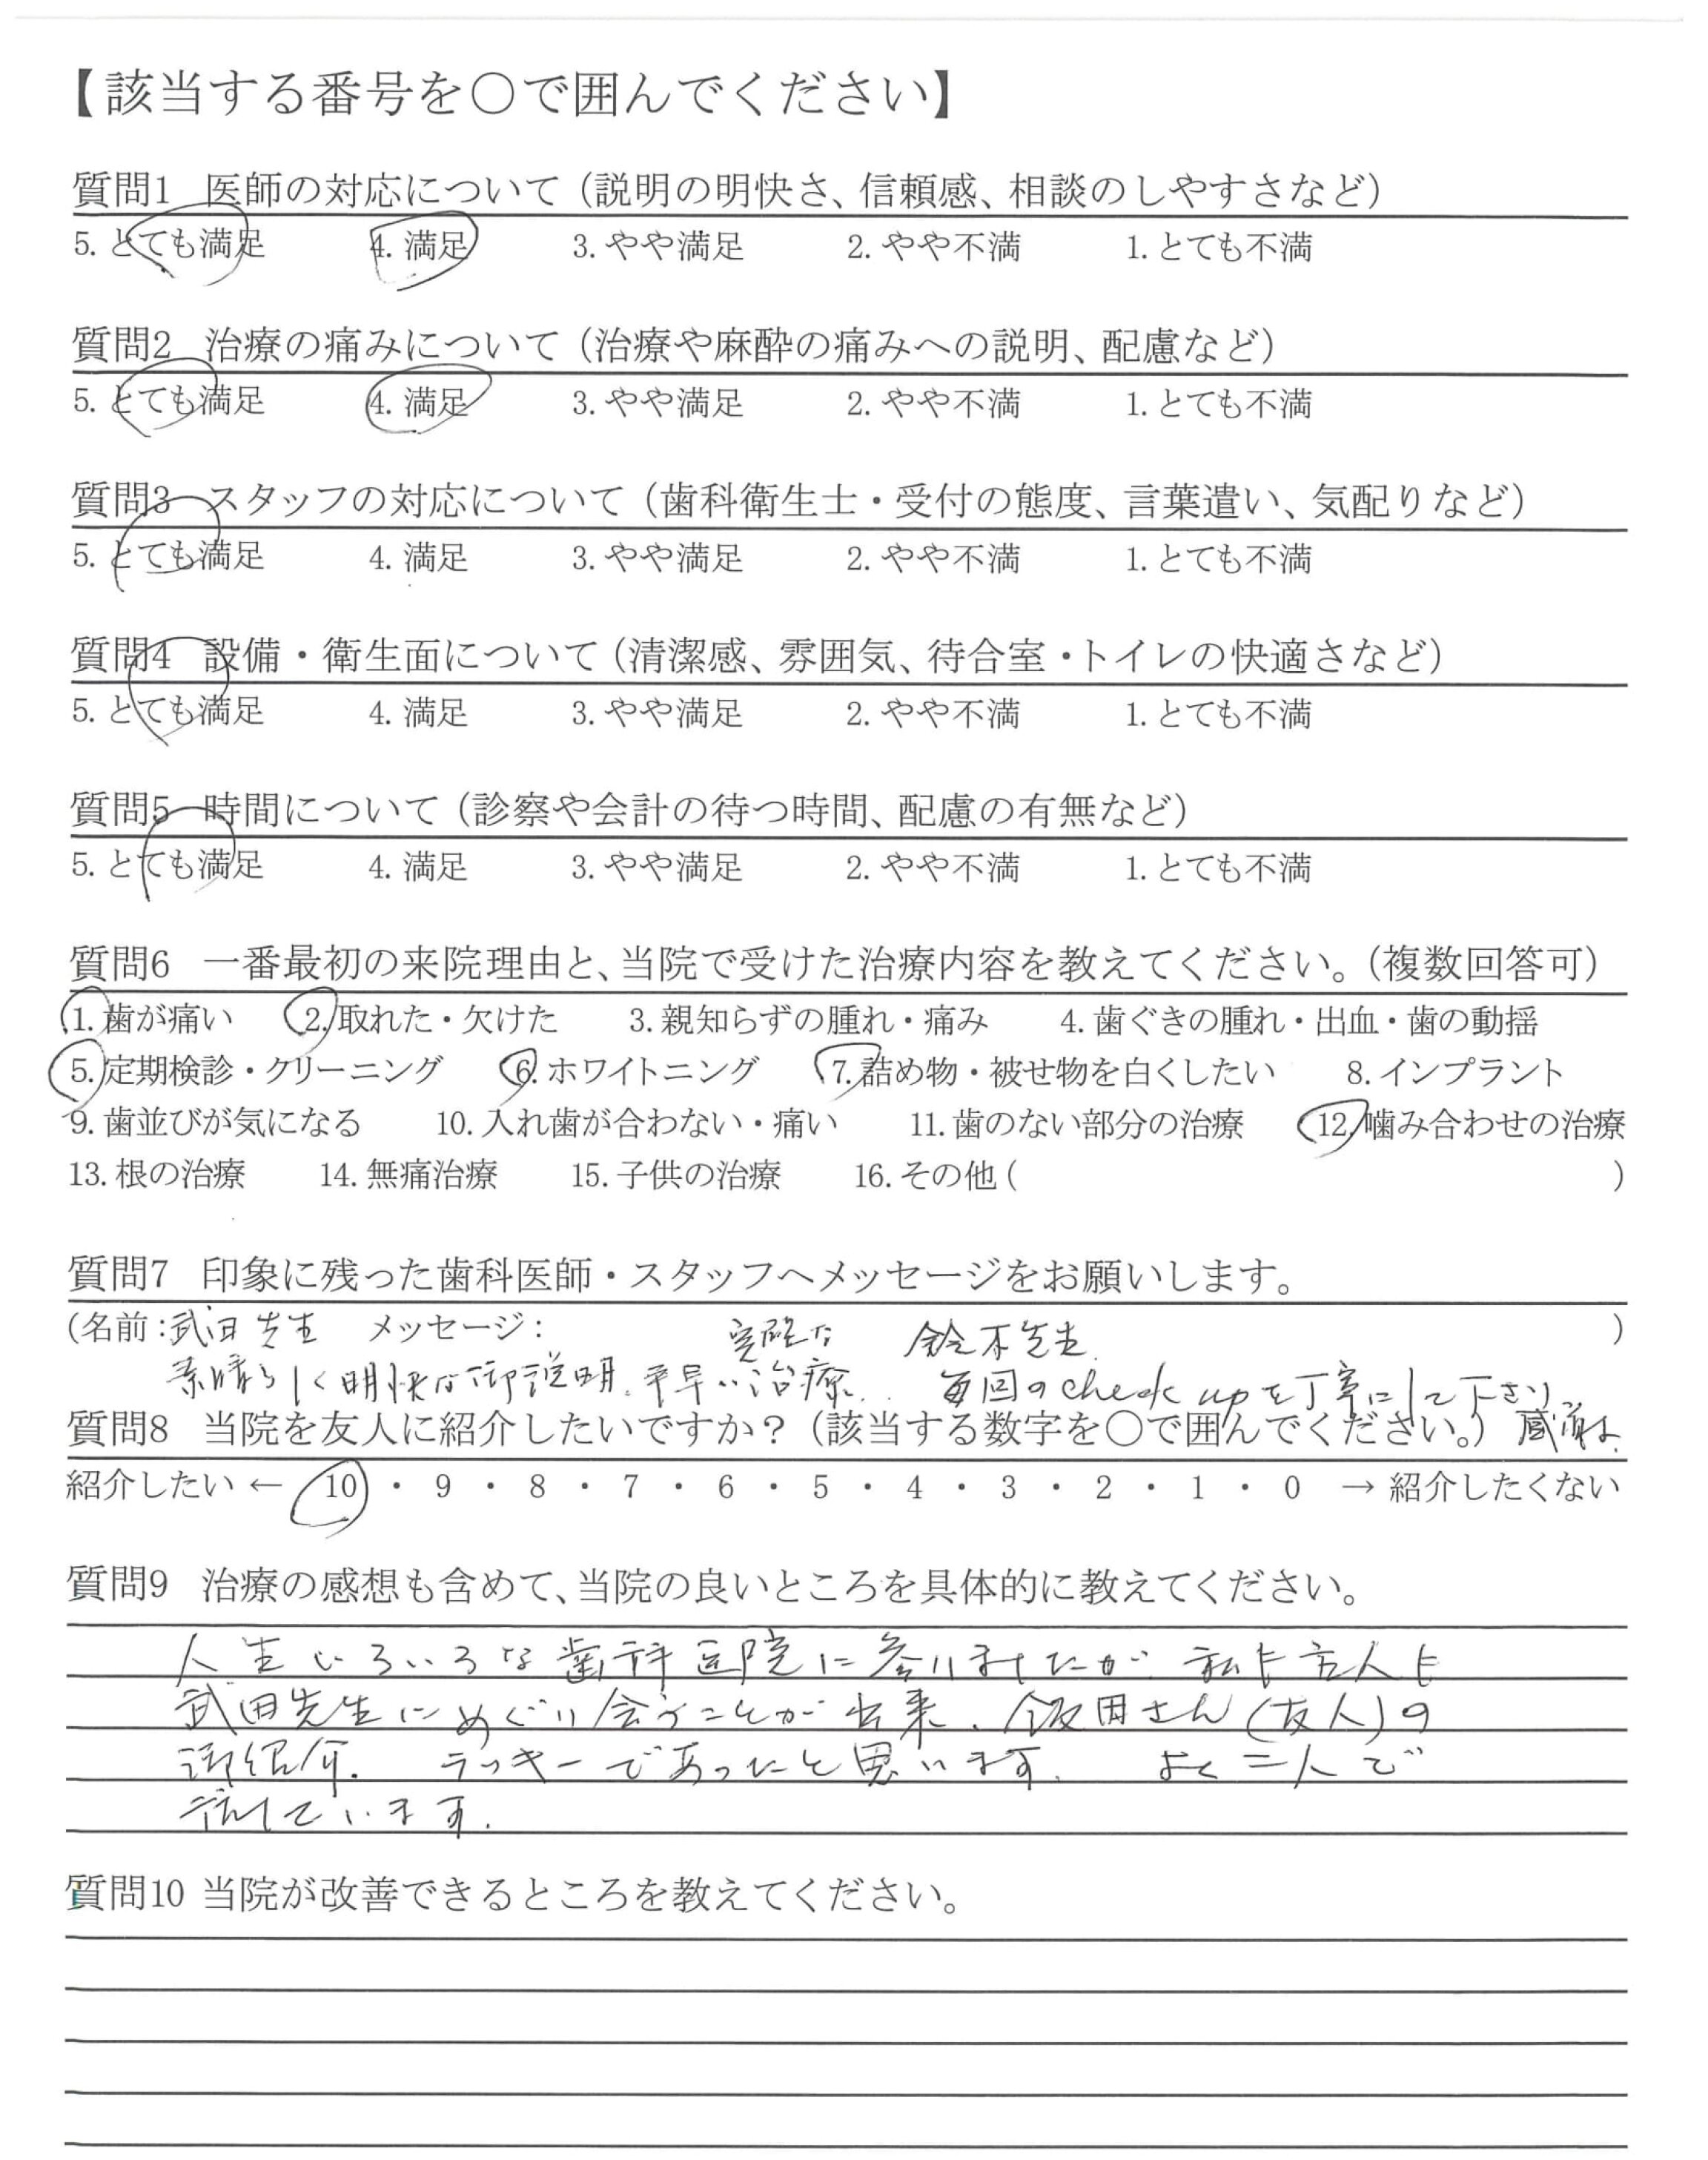 【該当する番号を〇で囲んでください】
質問1 医師の対応について（説明の明快さ、信頼感、相談のしやすさなど）
5. とても満足 4. 満足 3. やや満足 2. やや不満 1. とても不満
質問2 治療の痛みについて（治療や麻酔の痛みへの説明、配慮など）
5. とても満足 4. 満足 3. やや満足 2. やや不満 1. とても不満
質問3 スタッフの対応について（歯科衛生士・受付の態度、言葉遣い、気配りなど）
5. とても満足 4. 満足 3. やや満足 2. やや不満 1. とても不満
質問4 設備・衛生面について（清潔感、雰囲気、待合室・トイレの快適さなど）
5. とても満足 4. 満足 3. やや満足 2. やや不満 1. とても不満
質問5 時間について（診察や会計の待つ時間、配慮の有無など）
5. とても満足 4. 満足 3. やや満足 2. やや不満 1. とても不満
質問6 一番最初の来院理由と、当院で受けた治療内容を教えてください。（複数回答可）
1. 歯が痛い 2. 取れた・欠けた 3. 親知らずの腫れ・痛み 4. 歯ぐきの腫れ・出血・歯の動揺
5. 定期検診・クリーニング 6. ホワイトニング 7. 詰め物・被せ物を白くしたい 8. インプラント
9. 歯並びが気になる 10. 入れ歯が合わない・痛い 11. 歯のない部分の治療 12. 噛み合わせの治療
13. 根の治療 14. 無痛治療 15. 子供の治療 16. その他（ ）
質問7 印象に残った歯科医師・スタッフへメッセージをお願いします。
（名前：武田先生 メッセージ： 完璧な 鈴木先生 ）
素晴らしく明快な御説明、手早い治療。 毎回のcheck upを丁寧にして下さり、
質問8 当院を友人に紹介したいですか？（該当する数字を〇で囲んでください。） 感謝
紹介したい ← 10 ・ 9 ・ 8 ・ 7 ・ 6 ・ 5 ・ 4 ・ 3 ・ 2 ・ 1 ・ 0 → 紹介したくない
質問9 治療の感想も含めて、当院の良いところを具体的に教えてください。
人生いろいろな歯科医院に参りましたが 私も友人も
武田先生にめぐり会うことが出来、飯田さん（友人）の
御紹介。 ラッキーであったと思います。 よく二人で
話しています。
質問10 当院が改善できるところを教えてください。